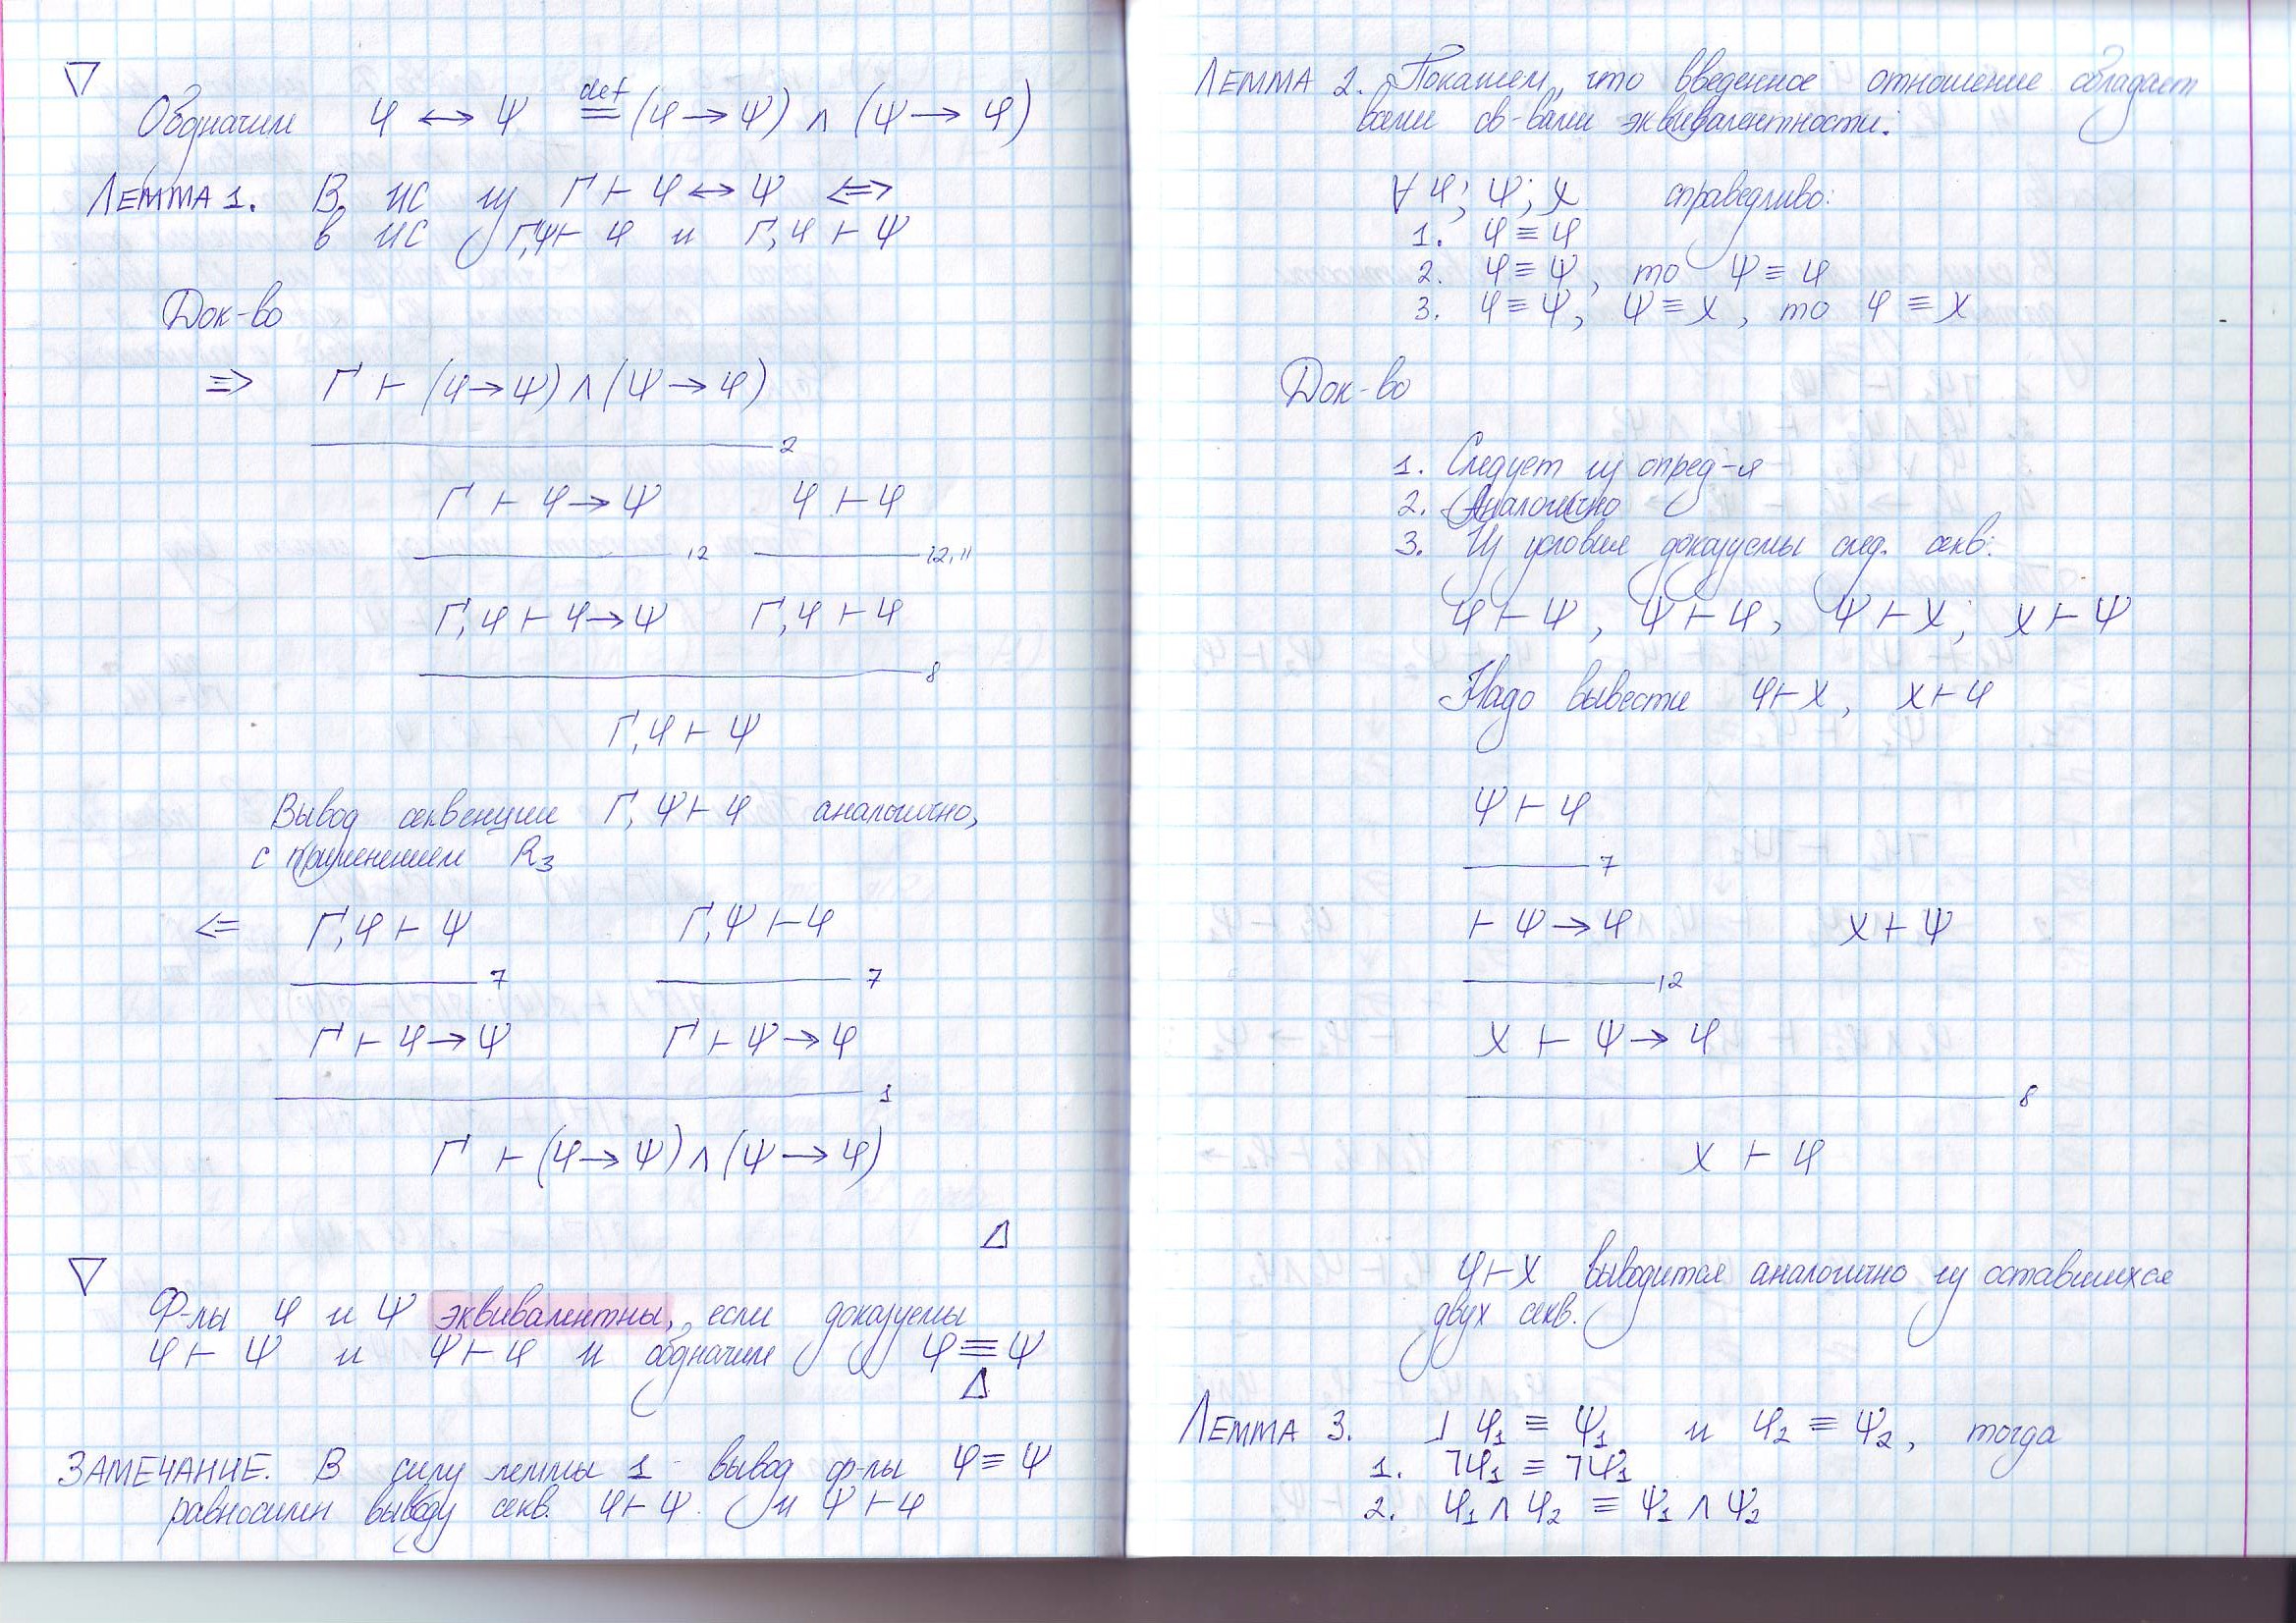 ▽
Обозначим φ ↔ ψ ≝ (φ → ψ) ∧ (ψ → φ)
ЛЕММА 1. В ИС из Γ ⊢ φ ↔ ψ ⇔
в ИС Γ,ψ ⊢ φ и Γ, φ ⊢ ψ
Док-во
⇒ Γ ⊢ (φ → ψ) ∧ (ψ → φ)
2
Γ ⊢ φ → ψ φ ⊢ φ
12 12, 11
Γ, φ ⊢ φ → ψ Γ, φ ⊢ φ
8
Γ, φ ⊢ ψ
Вывод секвенции Γ, ψ ⊢ φ аналогично,
с применением R₃
⇐ Γ, φ ⊢ ψ Γ, ψ ⊢ φ
7 7
Γ ⊢ φ → ψ Γ ⊢ ψ → φ
1
Γ ⊢ (φ → ψ) ∧ (ψ → φ)
Δ
▽
Ф-лы φ и ψ эквивалентны, если доказуемы
φ ⊢ ψ и ψ ⊢ φ и обозначим φ ≡ ψ
Δ
ЗАМЕЧАНИЕ. В силу леммы 1 вывод ф-лы φ ≡ ψ
равносилен выводу секв. φ ⊢ ψ и ψ ⊢ φ
ЛЕММА 2. Покажем, что введенное отношение обладает
всеми св-вами эквивалентности:
∀ φ; ψ; χ справедливо:
1. φ ≡ φ
2. φ ≡ ψ, то ψ ≡ φ
3. φ ≡ ψ, ψ ≡ χ, то φ ≡ χ
Док-во
1. Следует из опред-я
2. Аналогично
3. Из условия доказуемы след. секв:
φ ⊢ ψ, ψ ⊢ φ, ψ ⊢ χ; χ ⊢ ψ
Надо вывести φ ⊢ χ, χ ⊢ φ
ψ ⊢ φ
7
⊢ ψ → φ χ ⊢ ψ
12
χ ⊢ ψ → φ
8
χ ⊢ φ
φ ⊢ χ выводится аналогично из оставшихся
двух секв.
ЛЕММА 3. ⅃ φ₁ ≡ ψ₁ и φ₂ ≡ ψ₂, тогда
1. ¬φ₁ ≡ ¬ψ₁
2. φ₁ ∧ φ₂ ≡ ψ₁ ∧ ψ₂